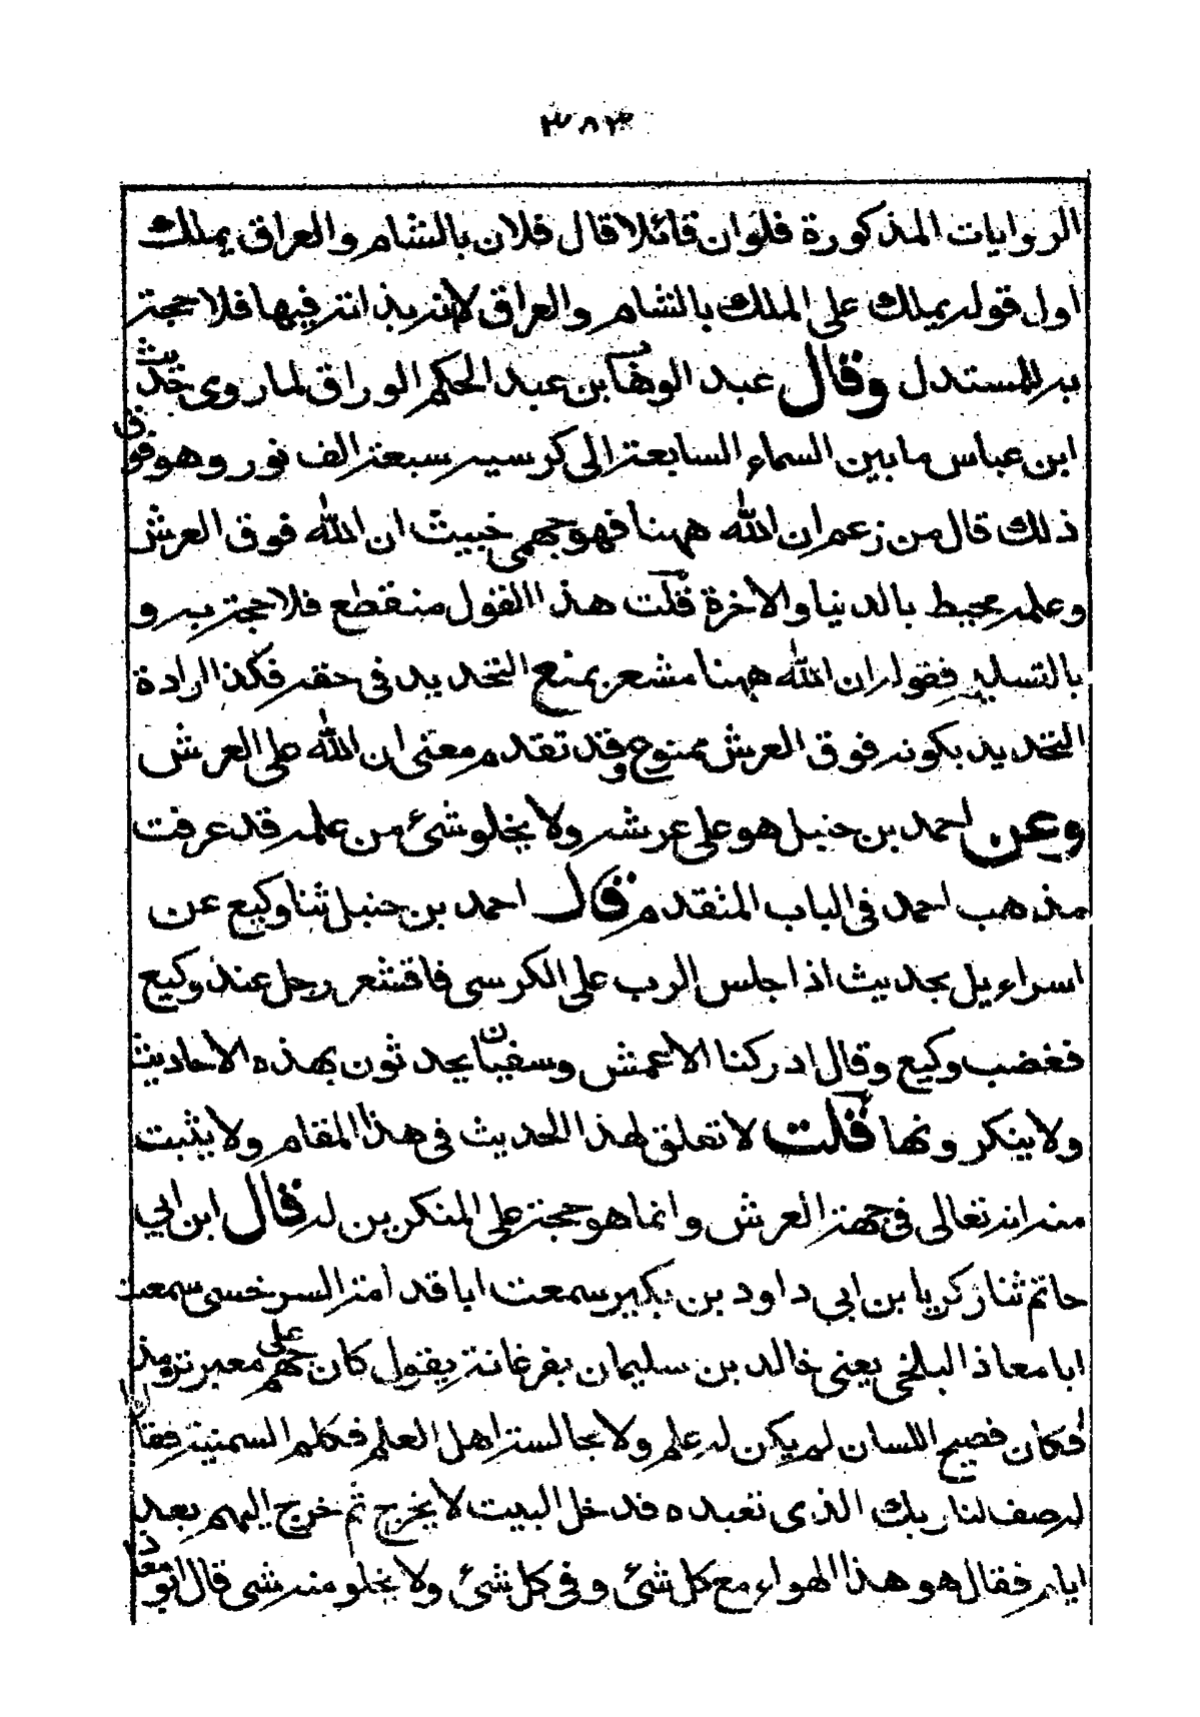 ٣٨٣
الروايات المذكورة فلوان قائلا قال فلان بالشام والعراق يملك
اول قوله يملك على الملك بالشام والعراق لانه بذاته فيها فلا حجة
به للمستدل وقال عبد الوهاب بن عبد الحكم الوراق لما روى حديث
ابن عباس ما بين السماء السابعة الى كرسيه سبعة الف نور وهو فوق
ذلك قال من زعم ان الله ههنا فهو جهمي خبيث ان الله فوق العرش
وعلمه محيط بالدنيا والاخرة قلت هذا القول منقطع فلا حجة به و
بالتسليم فقوله ان الله ههنا مشعر بمنع التحديد في حقه فكذا ارادة
التحديد بكونه فوق العرش ممنوع وقد تقدم معنى ان الله على العرش
وعن احمد بن حنبل هو على عرشه ولا يخلو شئ من علمه قد عرفت
مذهب احمد في الباب المتقدم قال احمد بن حنبل ثنا وكيع عن
اسراءيل بحديث اذا جلس الرب على الكرسي فاقشعر رجل عند وكيع
فغضب وكيع وقال ادركنا الاعمش وسفيان يحدثون بهذه الاحاديث
ولا ينكرونها قلت لا تعلق لهذا الحديث في هذا المقام ولا يثبت
منه انه تعالى في جهة العرش وانما هو حجة على المنكرين له قال ابن ابي
حاتم ثنا زكريا بن ابي داود بن بكير سمعت ابا قدامة السرخسي سمعت
ابا معاذ البلخي يعني خالد بن سليمان بفرغانة يقول كان جهم على معبر ترمذ
فكان فصيح اللسان لم يكن له علم ولا مجالسة اهل العلم فكلم السمنية فقالوا
له صف لنا ربك الذي تعبده فدخل البيت لا يخرج ثم خرج اليهم بعد
ايام فقال هو هذا الهواء مع كل شئ وفي كل شئ ولا يخلو منه شي قال ابو معاذ